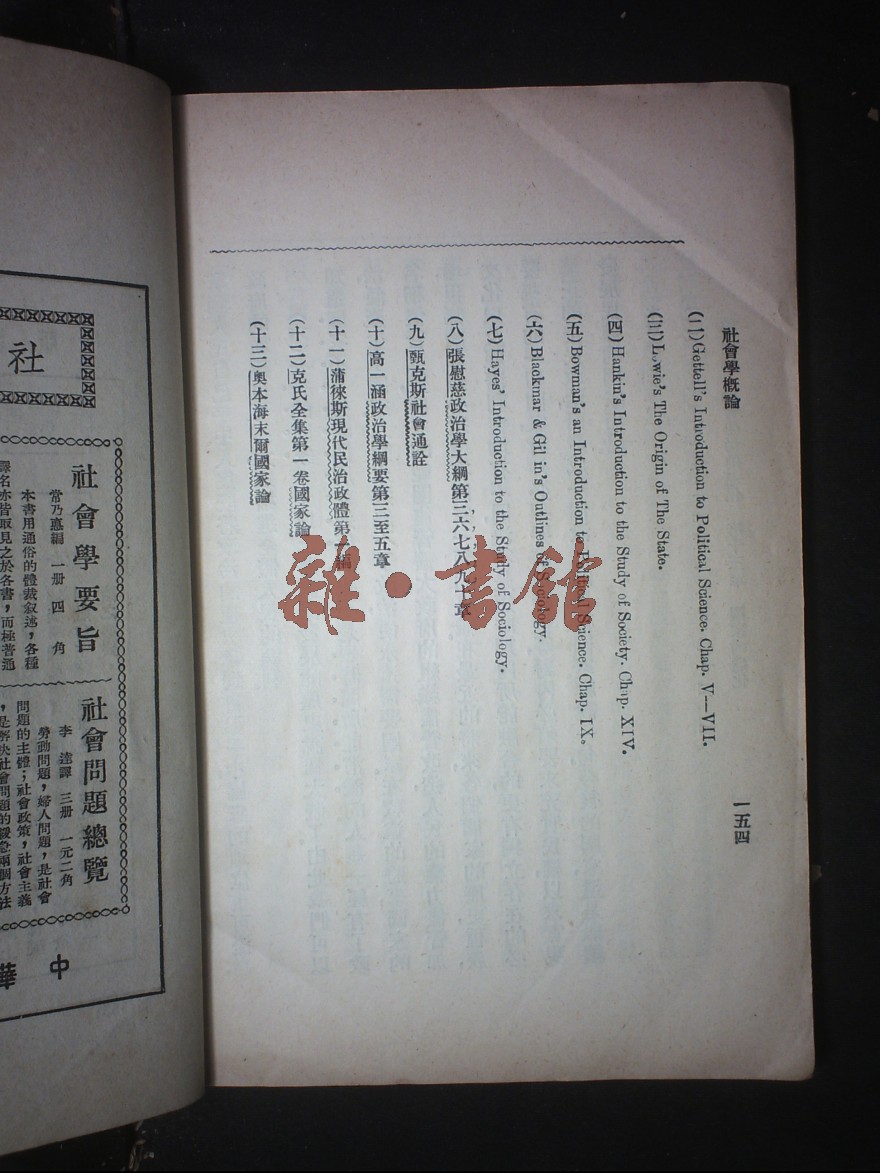 社會學概論
一五四
(二)Gettell's Introduction to Political Science. Chap. V—VII.
(三)Lowie's The Origin of The State.
(四)Hankin's Introduction to the Study of Society. Chap. XIV.
(五)Bowman's an Introduction to Political Science. Chap. IX。
(六)Blackmar & Gil in's Outlines of Sociology.
(七)Hayes' Introduction to the Study of Sociology.
(八)張慰慈政治學大綱第三六七八九十章
(九)甄克斯社會通詮
(十)高一涵政治學綱要第三至五章
(十一)蒲徠斯現代民治政體第一編
(十二)克氏全集第一卷國家論
(十三)奧本海末爾國家論
雜·書館
社
社會學要旨
常乃悳編 一册 四角
本書用通俗的體裁叙述,各種
譯名亦皆取見之於各書,而極普通
社會問題總覽
李達譯 三册 一元二角
勞動問題,婦人問題,是社會
問題的主體;社會政策,社會主義
,是解决社會問題的緩急兩個方法
中華